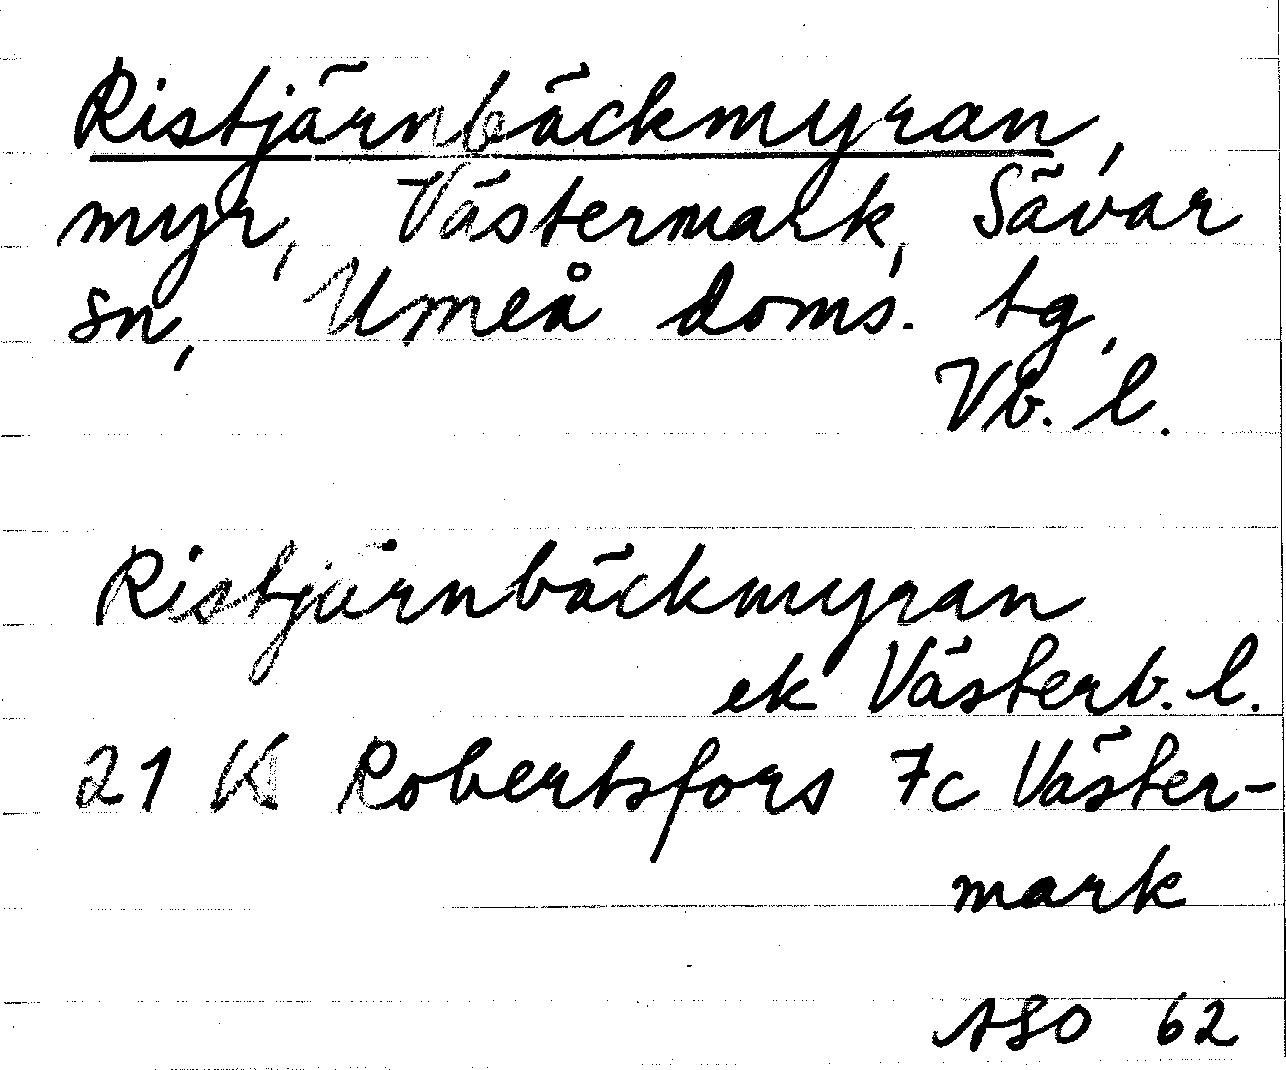 Ristjärnbäckmyran,
myr, Västermark, Sävar
sn, Umeå doms. tg,
Vb. l.
Ristjärnbäckmyran
ek Västerb. l.
21 K Robertsfors 7c Väster-
mark
ASO 62